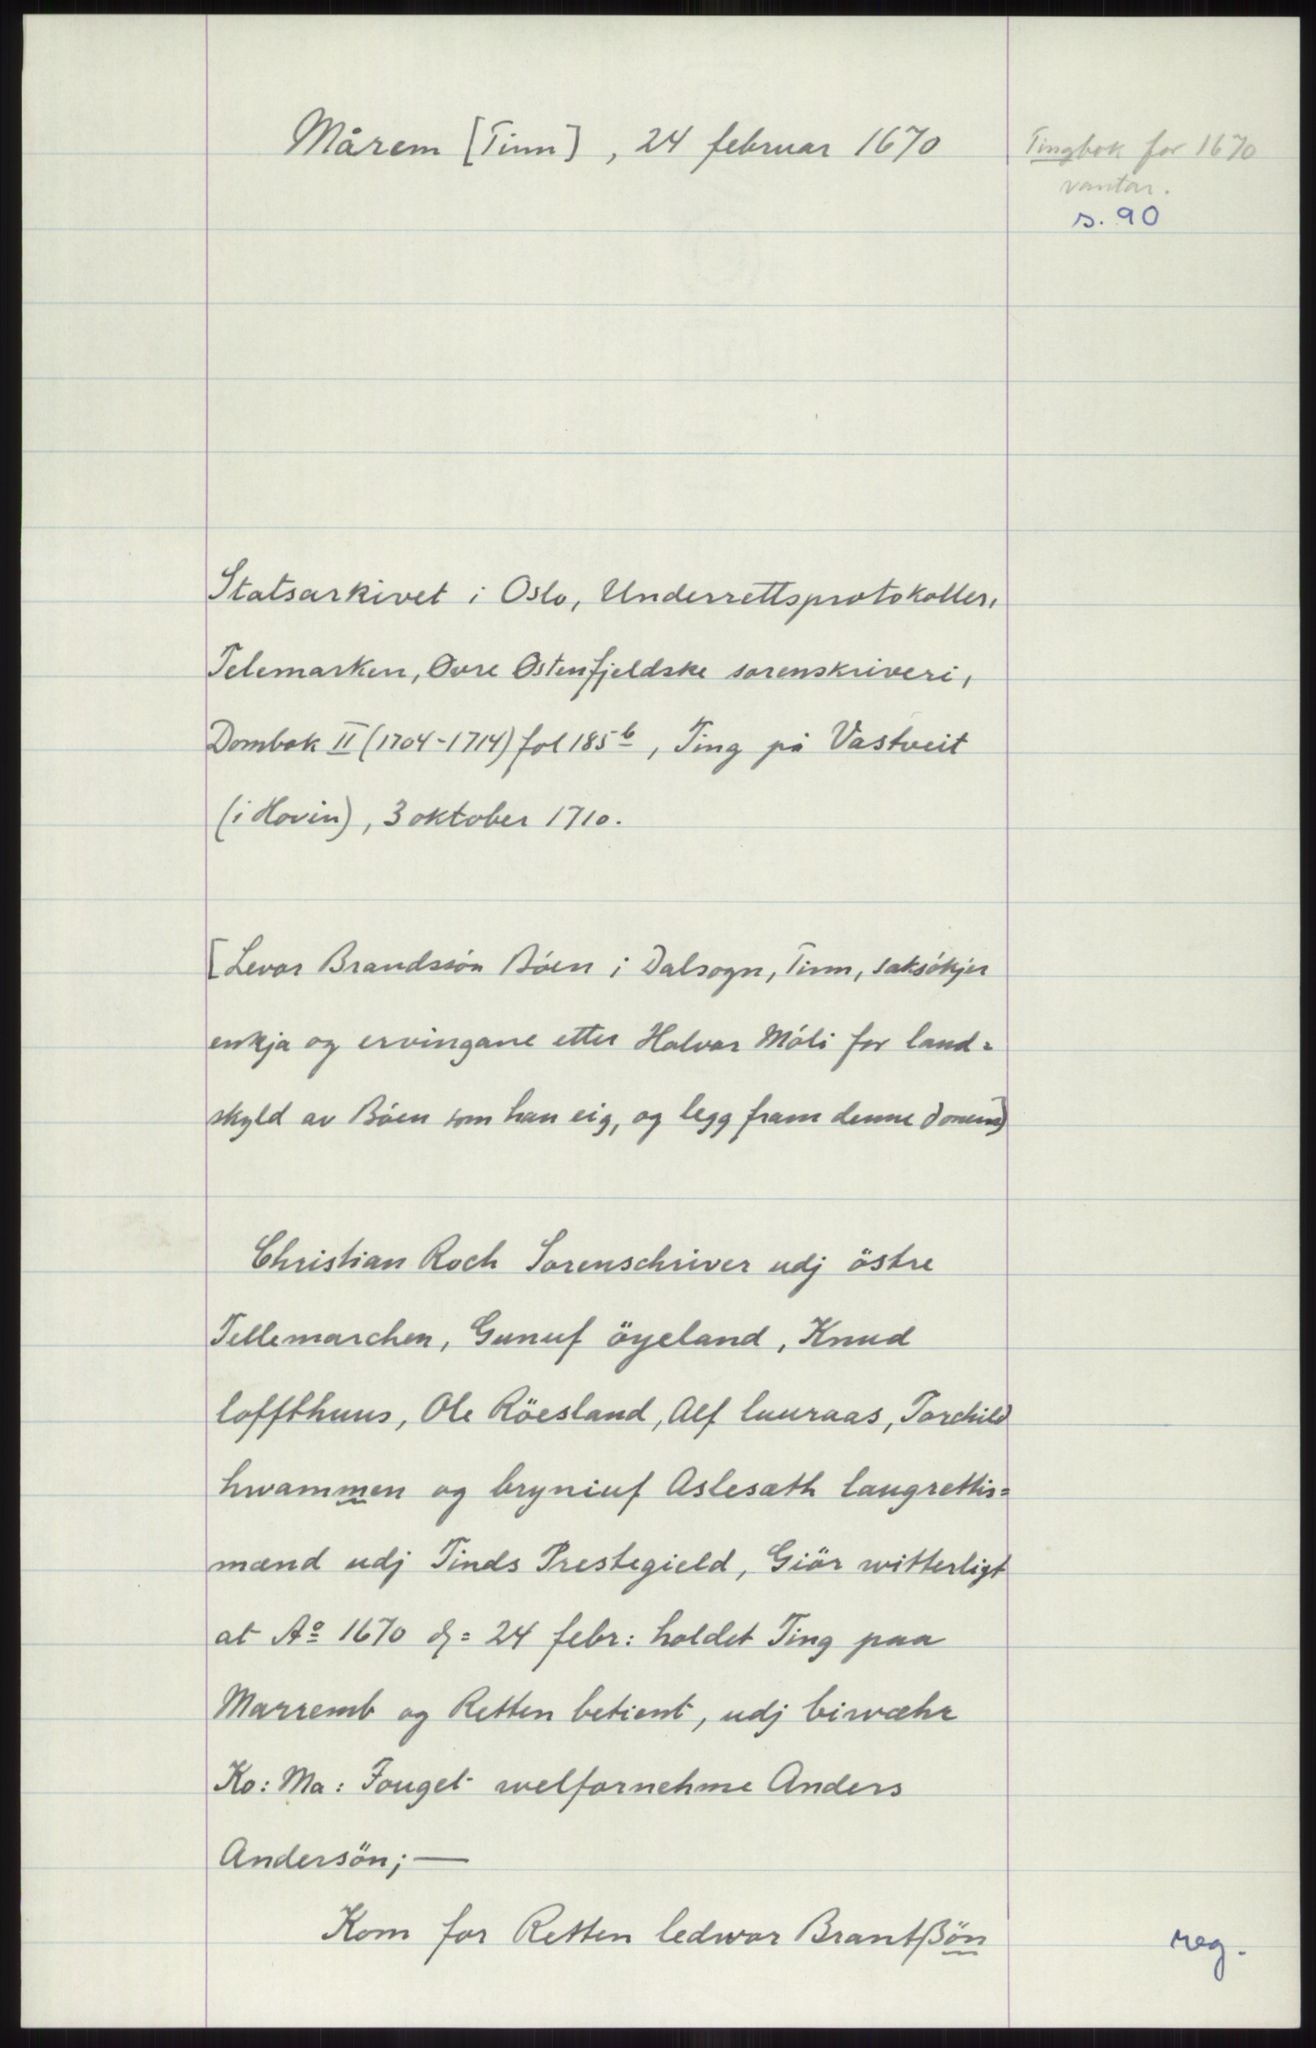 Mårem [Tinn], 24 februar 1670
Tingbok for 1670
vantar.
s. 90
Statsarkivet i Oslo, Underrettsprotokoller,
Telemarken, Øvre Østenfjeldske sorenskriveri,
Dombok II (1704-1714) fol 185 b, Ting på Vastveit
(i Hovin), 3 oktober 1710.
[Levor Brandssön Böen i Dalsogn, Tinn, saksökjer
enkja og ervingane etter Halvor Móli for land=
skyld av Böen som han eig, og legg fram denne domen]
Christian Roch Sorenschriver udj östre
Tellemarchen, Gunuf öyeland, Knud
loffthuus, Ole Röesland, Alf luuraas, Torchild
hwammen og bryniuf Aslesæth laugrettis=
mænd udj Tinds Prestegield, Giör witterligt
at Aº 1670 d= 24 febr: holdet Ting paa
Marremb og Retten betient, udj biwæhr
Ko: Ma: Fouget welfornehme Anders
Andersön; —
Kom for Retten ledwor Brantßön
reg.